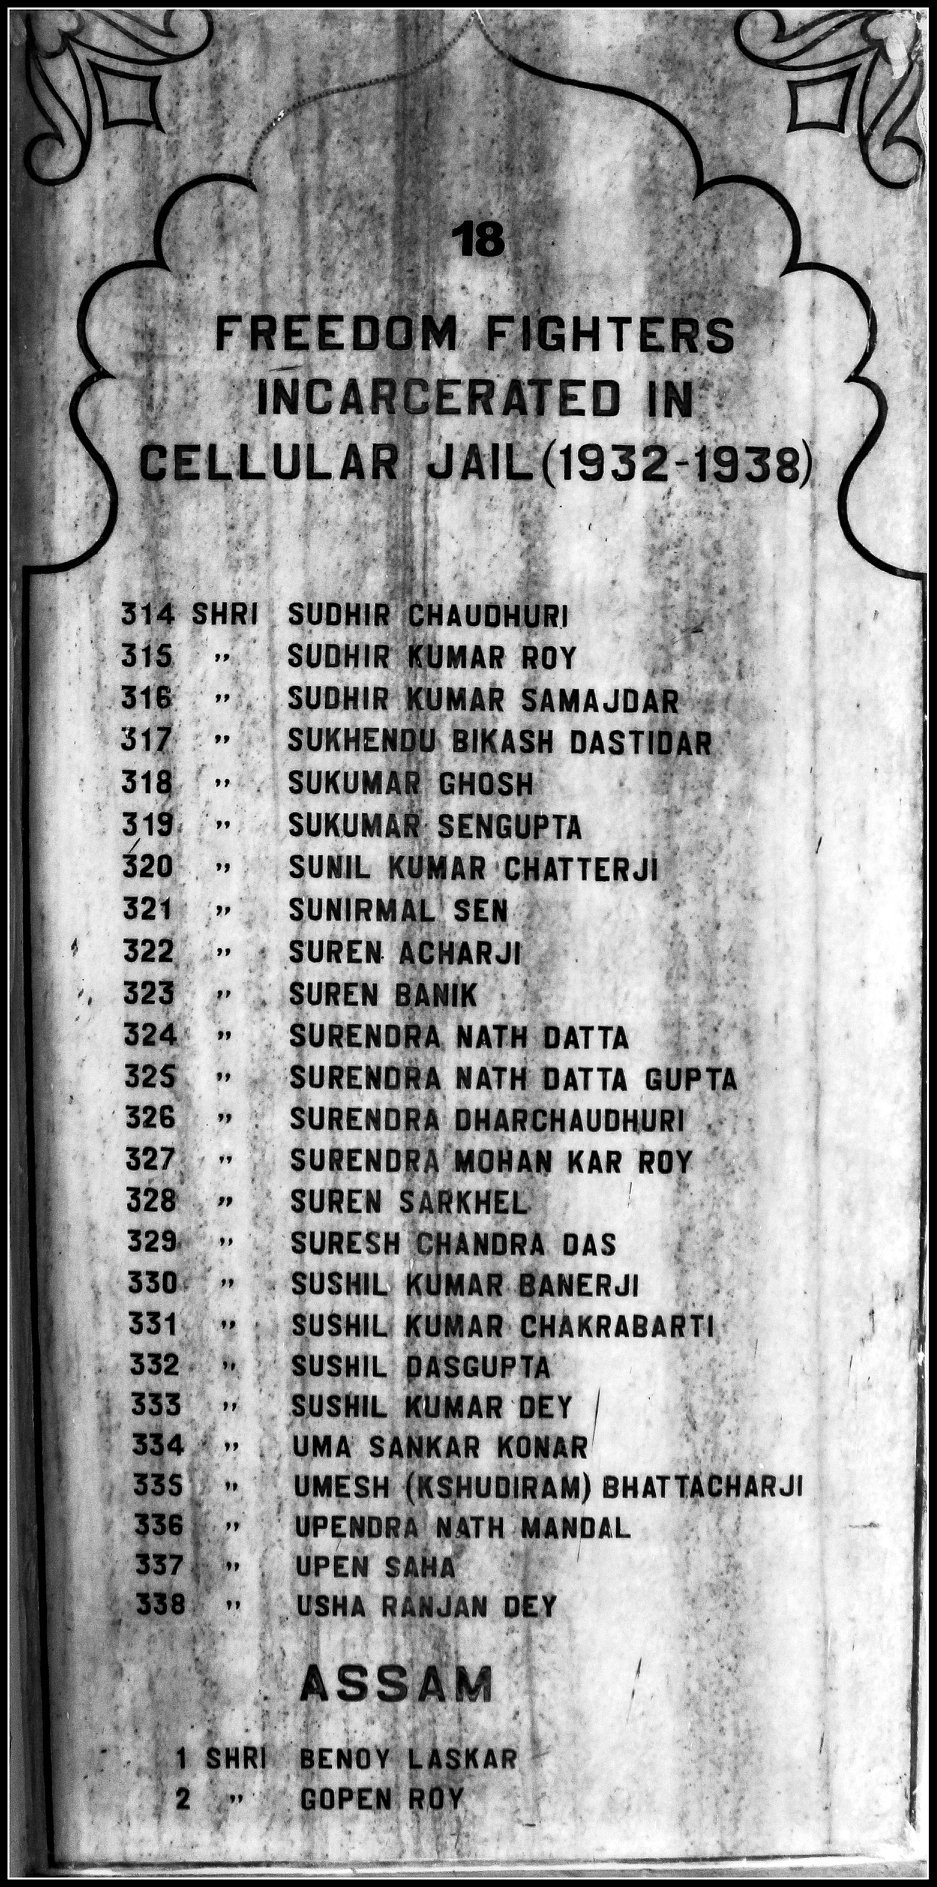 18
FREEDOM FIGHTERS
INCARCERATED IN
CELLULAR JAIL (1932-1938)
314 SHRI SUDHIR CHAUDHURI
315 " SUDHIR KUMAR ROY
316 " SUDHIR KUMAR SAMAJDAR
317 " SUKHENDU BIKASH DASTIDAR
318 " SUKUMAR GHOSH
319 " SUKUMAR SENGUPTA
320 " SUNIL KUMAR CHATTERJI
321 " SUNIRMAL SEN
322 " SUREN ACHARJI
323 " SUREN BANIK
324 " SURENDRA NATH DATTA
325 " SURENDRA NATH DATTA GUPTA
326 " SURENDRA DHARCHAUDHURI
327 " SURENDRA MOHAN KAR ROY
328 " SUREN SARKHEL
329 " SURESH CHANDRA DAS
330 " SUSHIL KUMAR BANERJI
331 " SUSHIL KUMAR CHAKRABARTI
332 " SUSHIL DASGUPTA
333 " SUSHIL KUMAR DEY
334 " UMA SANKAR KONAR
335 " UMESH (KSHUDIRAM) BHATTACHARJI
336 " UPENDRA NATH MANDAL
337 " UPEN SAHA
338 " USHA RANJAN DEY
ASSAM
1 SHRI BENOY LASKAR
2 " GOPEN ROY